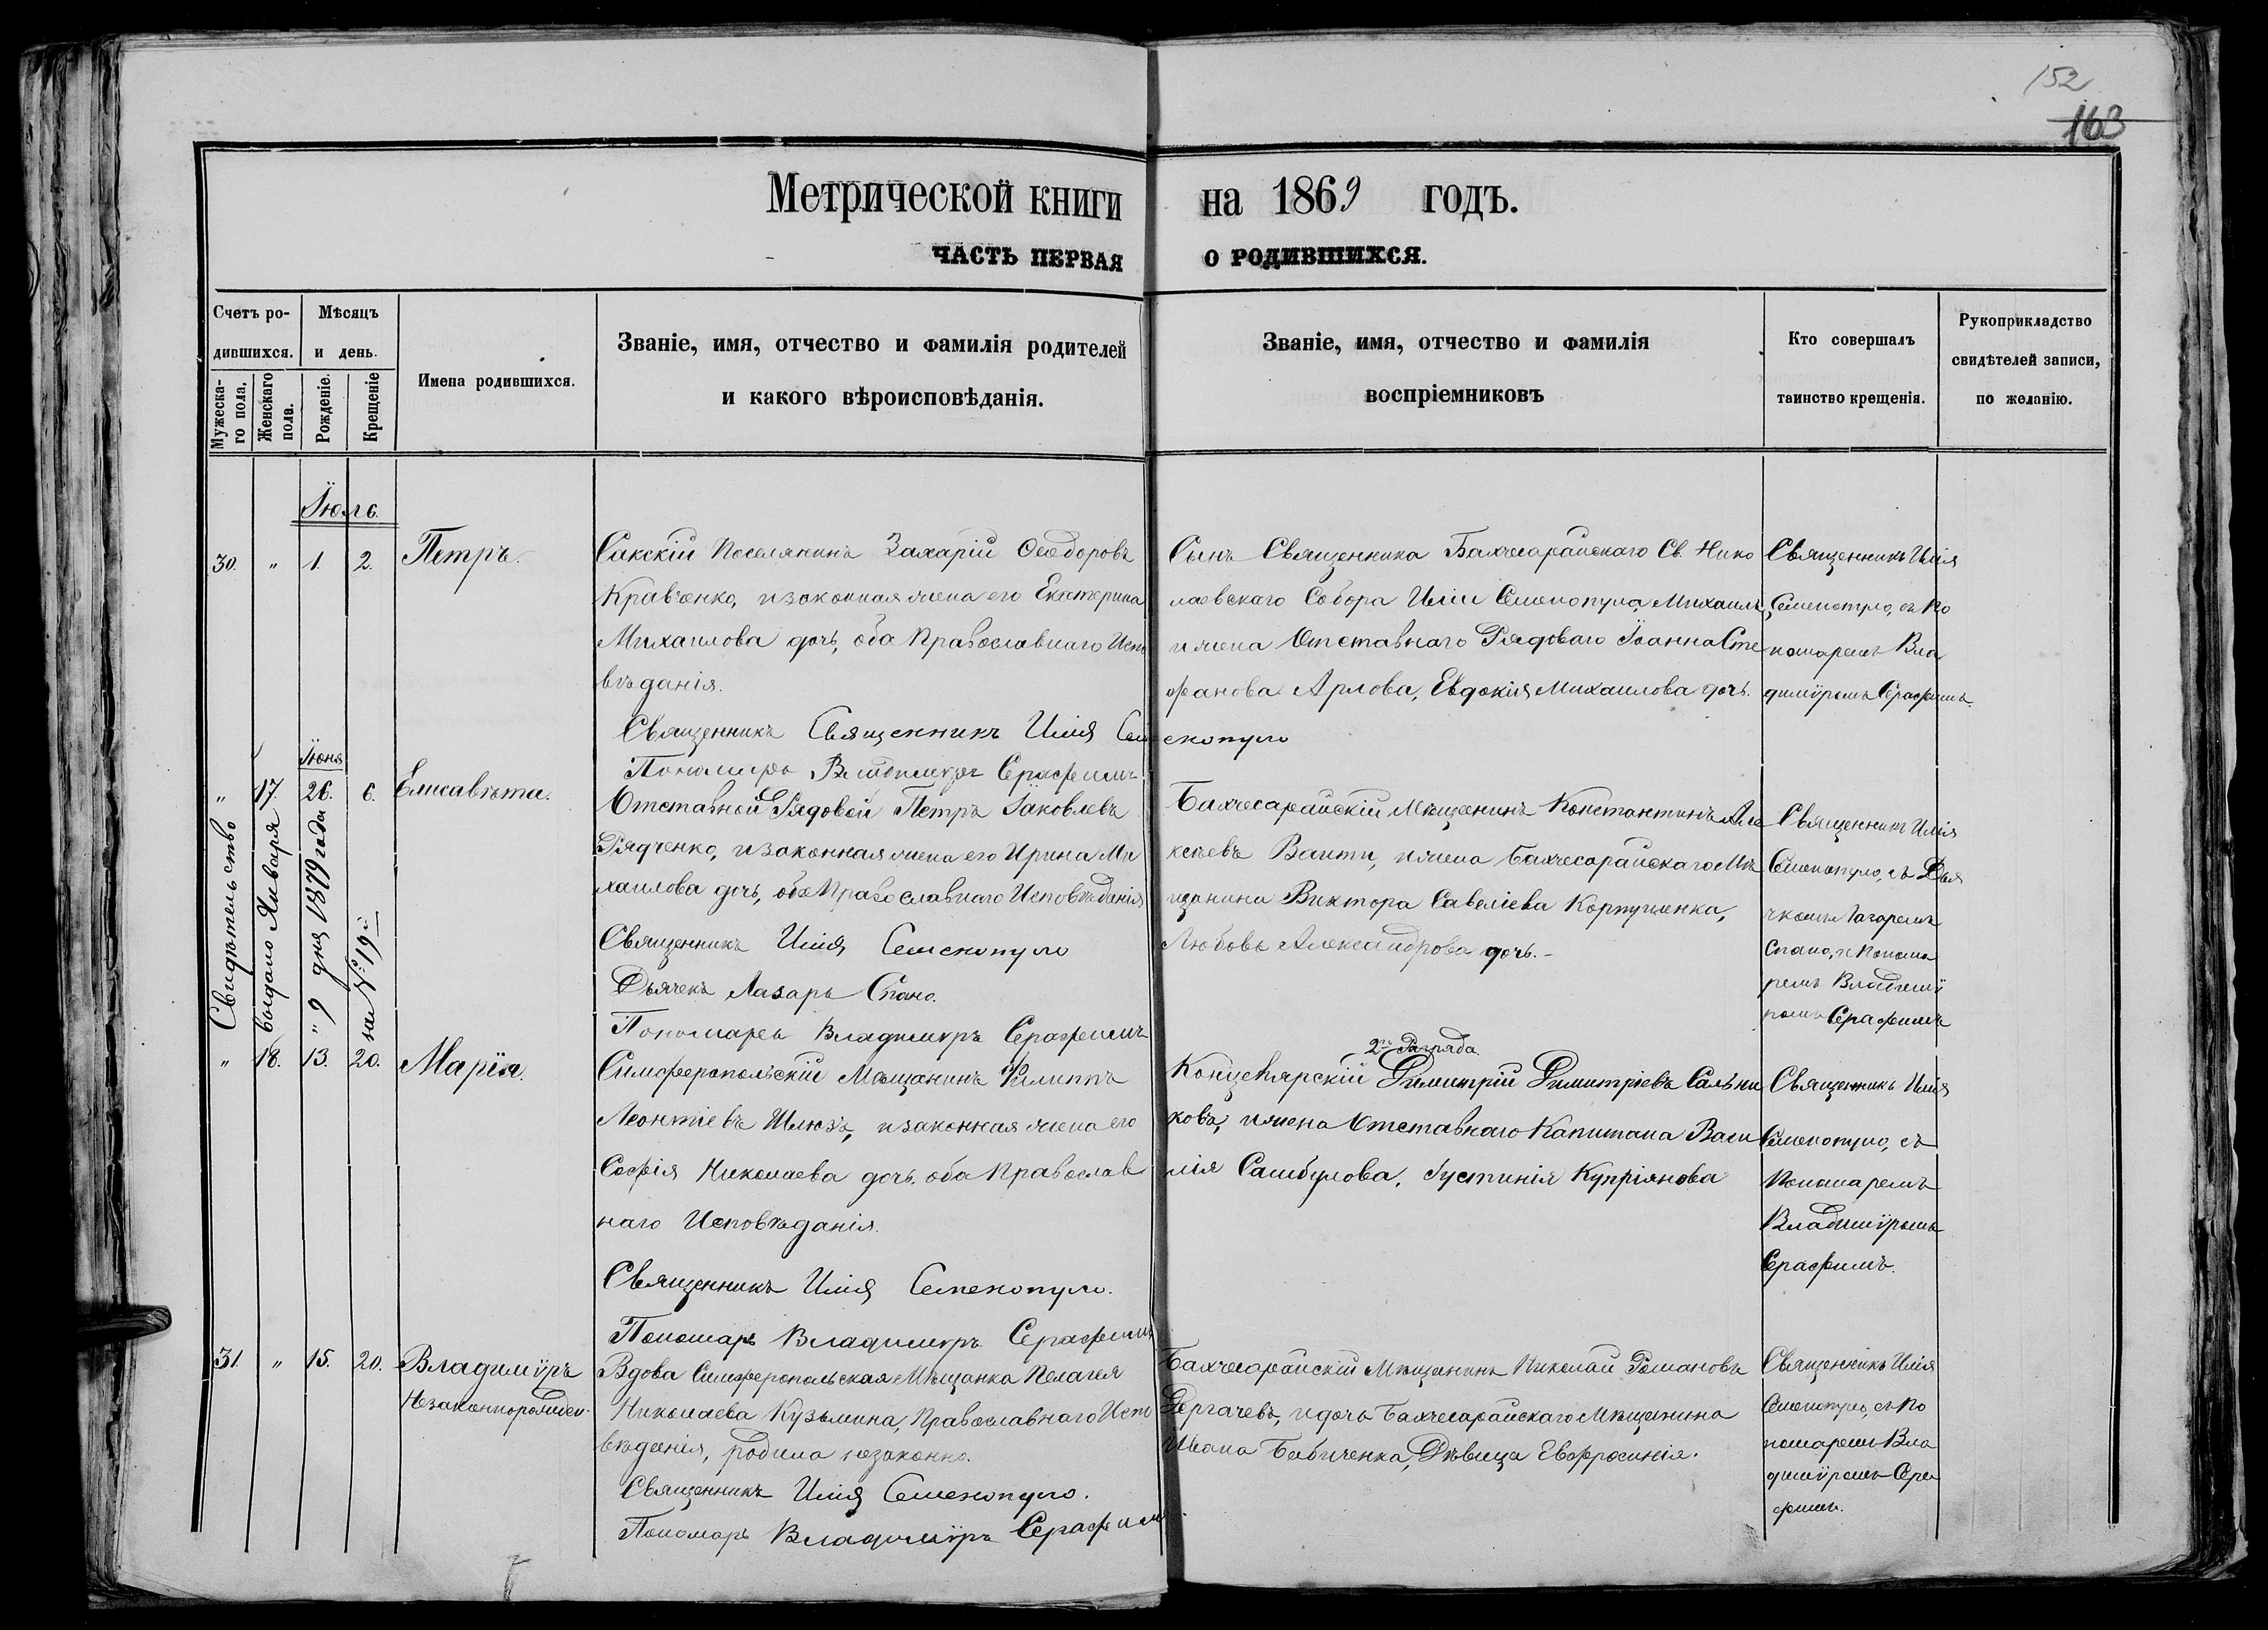 152
163
Метрической книги на 1869 годъ.
ЧАСТЬ ПЕРВАЯ О РОДИВШИХСЯ.
Счетъ ро-
дившихся.
Мужеска-
го пола.
Женскаго
пола.
Мѣсяцъ
и день.
Рожденіе.
Крещеніе
Имена родившихся.
Званіе, имя, отчество и фамилія родителей
и какого вѣроисповѣданія.
Званіе, имя, отчество и фамилія
воспріемниковъ
Кто совершалъ
таинство крещенія.
Рукоприкладство
свидѣтелей записи,
по желанію.
Іюль.
30. " 1. 2. Петръ.
Сакскій Поселянинъ Захарій Ѳеодоровъ
Кравченко, и законная жена его Екатерина
Михаилова дочь, оба Православнаго Испо
вѣданія.
Священникъ Священникъ Илія Семенопуло
Пономарь Владимиръ Серафимъ
Сынъ Священника Бахчесарайскаго Св. Нико
лаевскаго Собора Иліи Семенопула, Михаилъ,
и жена Отставнаго Рядоваго Іоанна Сте
фанова Арлова, Евдокія Михаилова дочь.
Священникъ Илія
Семенопуло, съ По
номаремъ Вла
диміромъ Серафимъ.
Іюня
" 17. 26. 6. Елисавѣта.
Свидѣтельство
выдано Января
" 9 дня 1879 года
за № 19й
Отставной Рядовой Петръ Іаковлевъ
Рядченко, и законная жена его Ирина Ми
хаилова дочь, оба Православнаго Исповѣданія
Священникъ Илія Семенопуло
Дьячекъ Лазарь Спано.
Пономарь Владимиръ Серафимъ
Бахчесарайскій Мѣщанинъ Константинъ Але
ксѣевъ Ванти, и жена Бахчесарайскаго Мѣ
щанина Виктора Савеліева
Любовь Александрова дочь.-
Священникъ Илія
Семенопуло, съ Дья
чкомъ Лазаремъ
Спано, и Понома
ремъ Владимі
ромъ Серафимъ
" 18. 13. 20. Марія.
Симферопольскій Мѣщанинъ Филиппъ
Леонтіевъ Шлюзъ, и законная жена его
Софія Николаева дочь, оба Православ
наго Исповѣданія.
Священникъ Илія Семенопуло.
Пономарь Владимиръ Серафимъ
2го Разряда.
Концелярскій Димитрій Димитріевъ Сальни
ковъ, и жена Отставнаго Капитана Васи
лія Самбулова, Іустинія Купріянова
Священникъ Илія
Семенопуло, съ
Пономаремъ
Владиміромъ
Серафимъ.
31. " 15. 20. Владиміръ
Незаконнорожден.
Вдова Симферопольская Мѣщанка Пелагея
Николаева Кузьмина, Православнаго Испо
вѣданія, родила незаконно.
Священникъ Илія Семенопуло.
Пономарь Владиміръ Серафимъ.
Бахчесарайскій Мѣщанинъ Николай Романовъ
Дергачевъ, и дочь Бахчесарайскаго Мѣщанина
Ивана Бабиченка, Дѣвица Евфросинія.
Священникъ Илія
Семенопуло, съ По
номаремъ Вла
диміромъ Сера
фимъ.